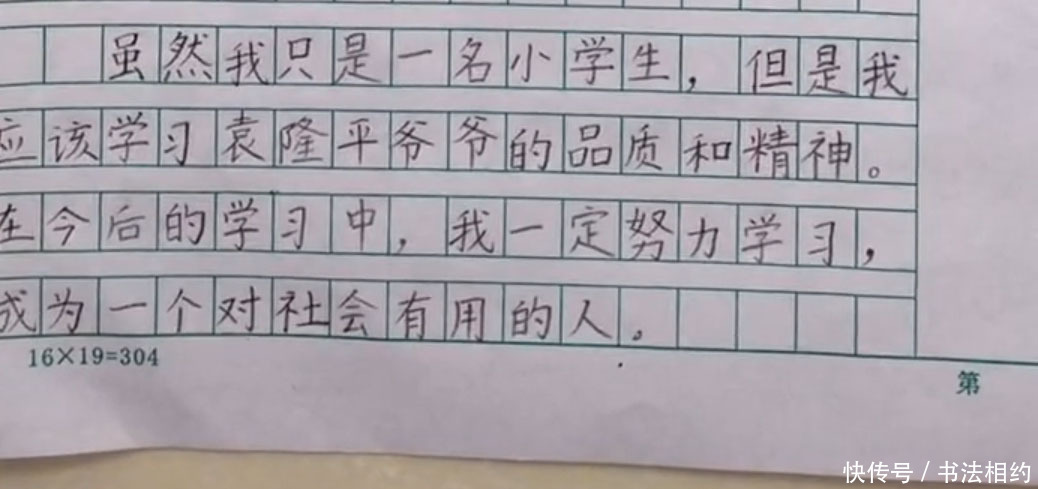 虽然我只是一名小学生，但是我
应该学习袁隆平爷爷的品质和精神。
在今后的学习中，我一定努力学习，
成为一个对社会有用的人。
16×19=304
第
快传号 / 书法相约